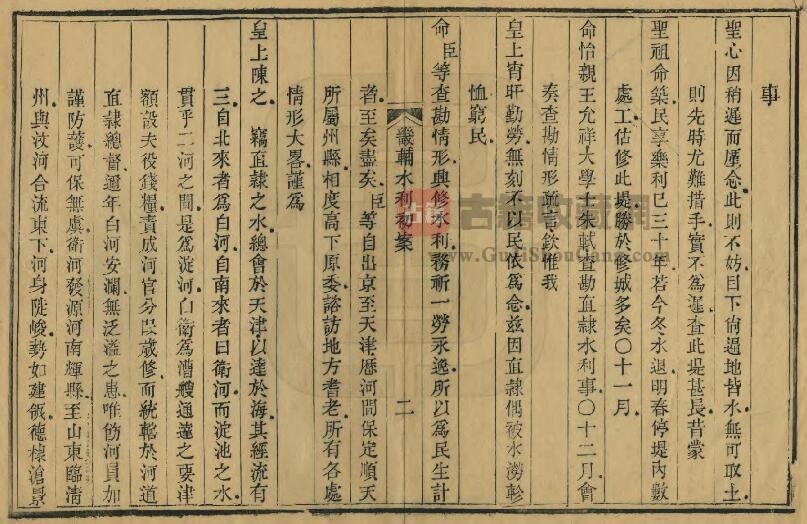 事
聖心因稍遲而厪念此則不妨目下偹邊地皆水無可取土
則先時尤難措手實不為遲查此堤甚長昔蒙
聖祖命築民享樂利已三十年若今冬水退明春停堤內數
處工估修此堤勝於修城多矣〇十一月
命怡親王允祥大學士朱軾查勘直隸水利事〇十二月會
奏查勘情形疏言欽惟我
皇上宵旰勤勞無刻不以民依為念茲因直隸偶被水澇軫
恤窮民
命臣等查勘情形興修水利務祈一勞永逸所以為民生計
畿輔水利初案 二
者至矣盡矣臣等自出京至天津歷河間保定順天
所屬州縣相度高下原委諮訪地方耆老所有各處
情形大畧謹為
皇上陳之竊直隸之水總會於天津以達於海其經流有
三自北來者為白河自南來者曰衛河而淀池之水
貫乎二河之間是為淀河白衛為漕艘通達之要津
額設夫役錢糧責成河官分段歲修而統轄於河道
直隸總督邇年白河安瀾無泛溢之患唯飭河員加
謹防護可保無虞衛河發源河南輝縣至山東臨清
州與汶河合流東下河身陡峻勢如建瓴德棣滄景
占籍 古籍收藏网
www.GuJiShouCang.com